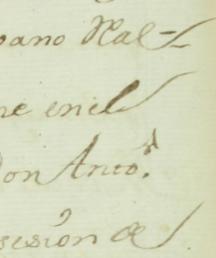 pano Nal=
ne en el
Don Anto.
sesion de